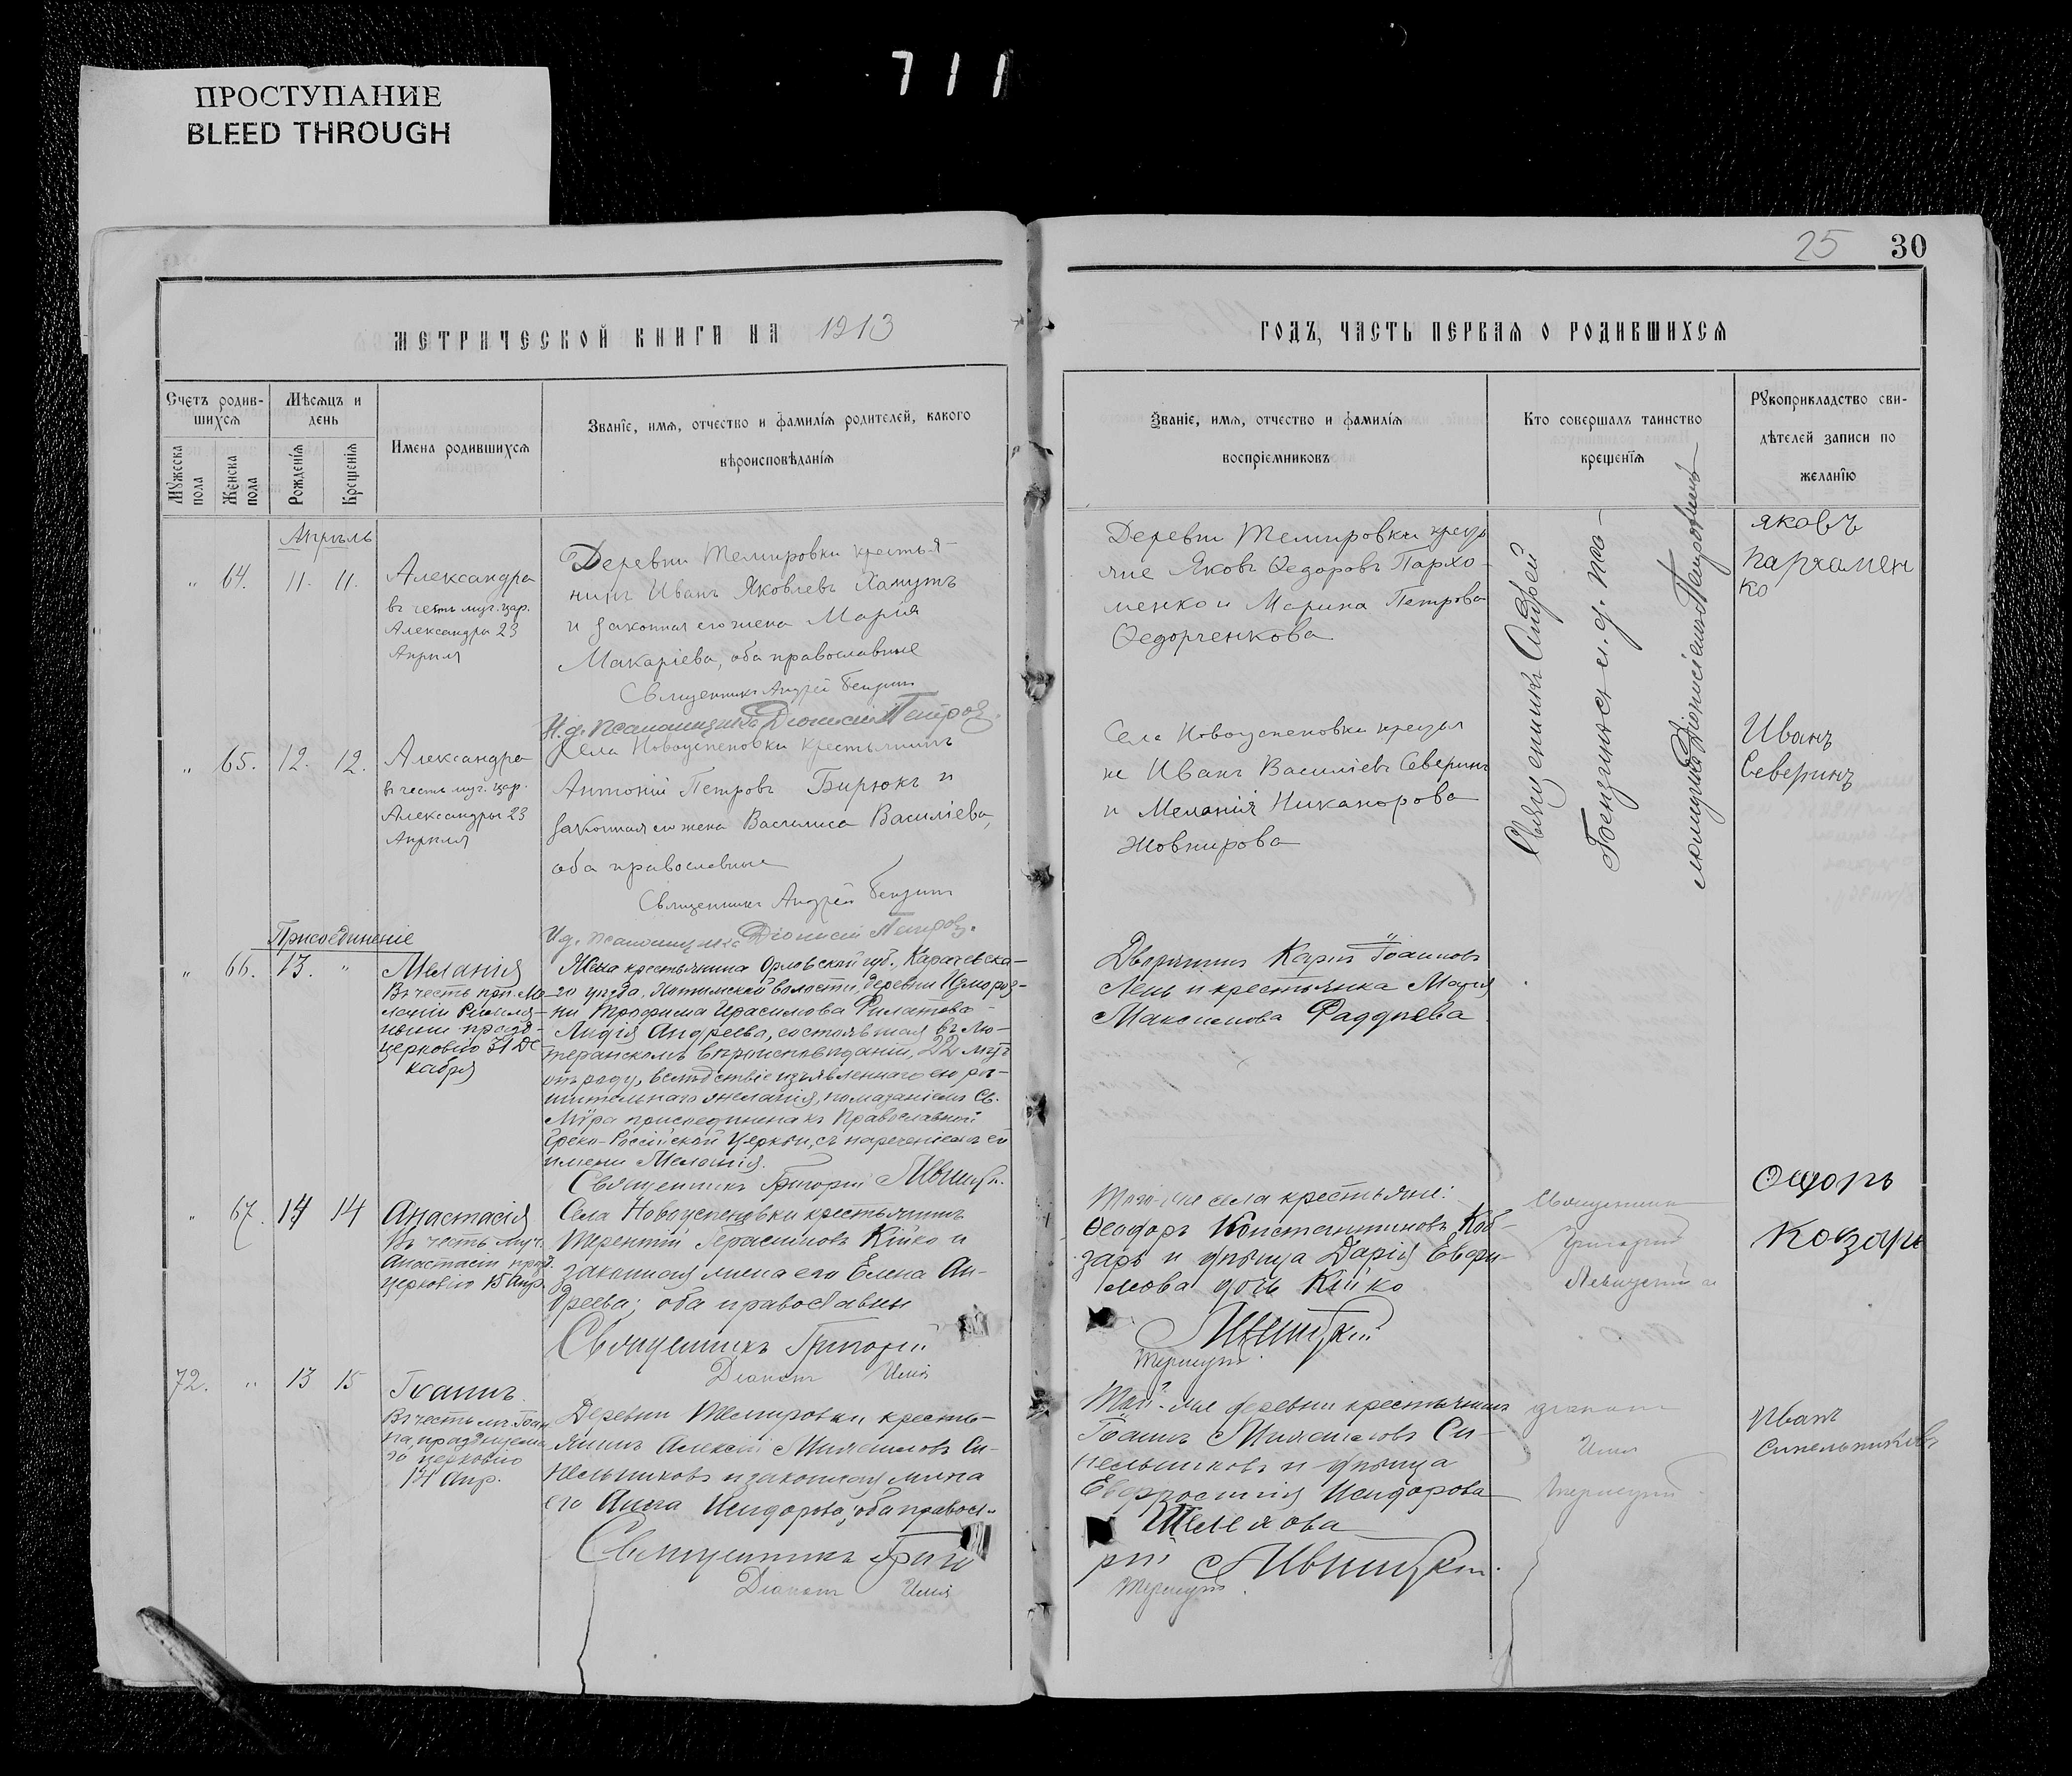 711
ПРОСТУПАНИЕ
BLEED THROUGH
25 30
МЕТРИЧЕСКОЙ КНИГИ НА 1913
ГОДЪ, ЧАСТЬ ПЕРВАЯ О РОДИВШИХСЯ
Счетъ родив-
шихся
Мѣсяцъ и
день
Мужеска
пола
Женска
пола
Рожденія
Крещенія
Имена родившихся
Званіе, имя, отчество и фамилія родителей, какого
вѣроисповѣданія
Званіе, имя, отчество и фамилія
воспріемниковъ
Кто совершалъ таинство
крещенія
Рукоприкладство сви-
дѣтелей записи по
желанію
Апрѣль
" 64. 11. 11.
Александра
въ честь муч. цар.
Александры 23
Апрѣля
Деревни Темировки крестья-
нинъ Иванъ Яковлевъ Хапутъ
и законная его жена Марія
Макаріева, оба православные
Священникъ Андрей Бенzинъ
И. д. псаломщика Діонисій Петров.
Деревни Темировки крестья
не Яковъ Ѳедоровъ Пархо-
менко и Марина Петрова
Ѳедорченкова
Священникъ Андрей
и. д. пса-
ломщика Діонисій Петровъ
яковъ
пархамен
ко
" 65. 12. 12.
Александра
въ честь муч. цар.
Александры 23
Апрѣля
Села Новоуспеновки крестьянинъ
Антоній Петровъ Бирюкъ и
законная его жена Василиса Василіева,
оба православные
Священникъ Андрей
И д. псаломщика Діонисій Петров.
Села Новоуспеновки крестья
не Иванъ Василіевъ Северинъ
и Меланія Никанорова
Жовнирова
Иванъ
Северинъ
Присоединеніе
" 66. 13. "
Меланія
Въ честь преп. Ме-
ланіи Римля-
ныни празд-
церковію 31 Де
кабря
Жена крестьянина Орловской губ., Карачевска-
го уѣзда, волости, деревни
ни Трофима Герасимова Филатова
Лидія Андреева, состоявшая въ Лю-
теранскомъ вѣроисповѣданіи, 22 лѣтъ
отъ роду, вслѣдствіе изъявленнаго ею рѣ-
шительнаго желанія, помазаніемъ Св.
Мѵра присоединена къ Православной
Греко-Россійской Церкви, съ нареченіемъ ей
имени Меланія.
Священникъ Григорій Левицкі.
Дворянинъ Карпъ Іоанновъ
Лень и крестьянка Марія
Максимова Фаддѣева
" 67. 14 14
Анастасія
Въ честь Муч.
Анастасіи празд.
церковію 15 Апр.
Села Новоуспеновки крестьянинъ
Терентій Герасимовъ Кійко и
законная жена его Елена Ан-
дреева; оба православны
Священникъ Григорій
Діаконъ Илія
Того-же села крестьяне:
Ѳеодоръ Константиновъ Коб-
заръ и дѣвица Дарія Евфи-
мова дочь Кійко
Левицкій
Священникъ
Григорій
Левицкій и
Ѳедоръ
Козаръ
72. " 13 15
Іоаннъ
Въ честь Іоан
на, празднуема
го церковію
14 Апр.
Деревни Темировки кресть-
янинъ Алексій Михаиловъ Си-
нельниковъ и законная жена
его Анна Исидорова; оба правосл.
Священникъ Григо
Діаконъ Илія
Той-же деревни крестьянинъ
Іоаннъ Михаиловъ Си-
нельниковъ и дѣвица
Евфросинія Исидорова
Шенякова
рій Левицкій.
діаконъ
Илія
Иванъ
Синельниковъ